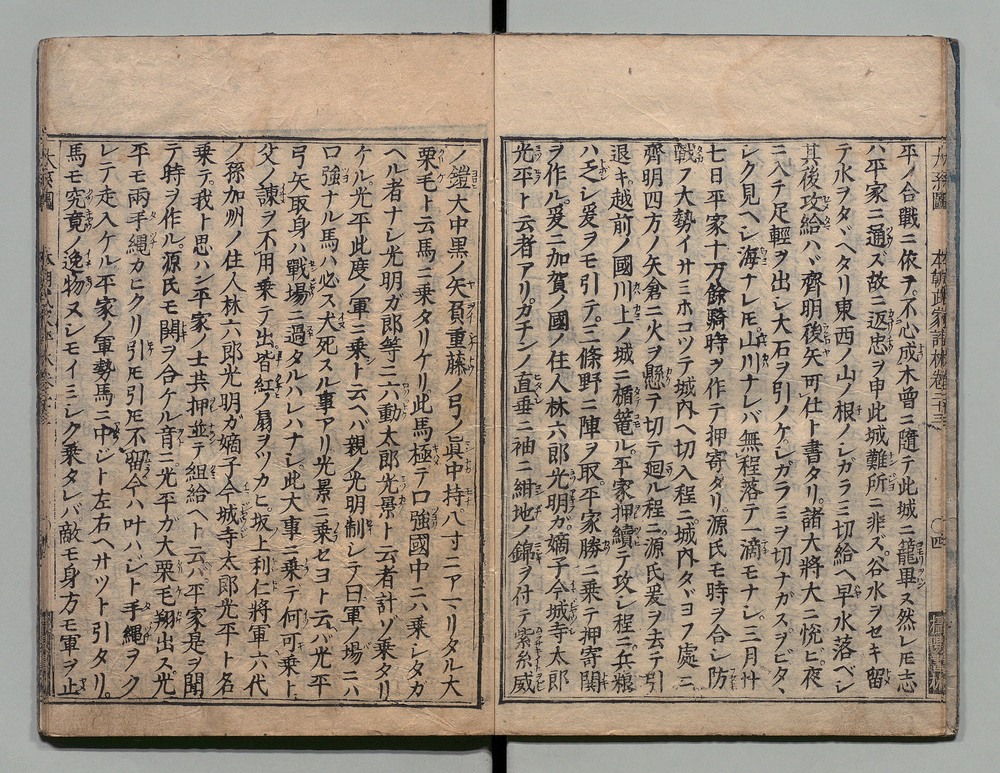 平ノ合戰ニ依テ不心成木曾ニ隨テ此城ニ籠畢ヌ然レ𪜈志
ハ平家ニ通ズ故ニ返忠ヲ申此城難所ニ非ズ谷水ヲセキ留
テ水ヲタヾヘタリ東西ノ山ノ根ノシガラミ切給ヘ早水落ベシ
其後攻給ハヾ齊明後矢可仕ト書タリ諸大將大ニ悅ビ夜
ニ入テ足輕ヲ出シ大石ヲ引ノケシガラミヲ切ナガスヲビタヽ
シク見ヘシ海ナレ𪜈山川ナレバ無程落テ一滴モナシ三月廿
七日平家十万餘騎時ヲ作テ押寄ダリ源氏モ時ヲ合シ防
戰フ大勢イサミホコツテ城內ヘ切入程ニ城內タヾヨフ處ニ
齊明四方ノ矢倉ニ火ヲ懸テ切テ廻ル程ニ源氏爰ヲ去テ引
退キ越前ノ國川上ノ城ニ楯篭ル平家押續テ攻シ程ニ兵粮
ハ乏シ爰ヲモ引テ三條野ニ陣ヲ取平家勝ニ乘テ押寄鬨
ヲ作ル爰ニ加賀ノ國ノ住人林六郎光明カ嫡子今城寺太郎
光平ト云者アリカチンノ直垂ニ袖ニ紺地ノ錦ヲ付テ紫糸威
ノ鎧大中黑ノ矢負重藤ノ弓ノ眞中持八寸ニアマリタル大
栗毛ト云馬ニ乘タリケリ此馬極テ口強國中ニハ乘シタガ
ヘル者ナシ光明ガ郎等ニ六動太郎光景ト云者計ゾ乘タリ
ケル光平此度ノ軍ニ乘ト云ヘバ親ノ光明制シテ曰軍ノ場ニハ
口強ナル馬ハ必ス犬死スル事アリ光景ニ乘セヨト云バ光平
弓矢取身ハ戰場ニ過タルハレハナシ此大事ニ乘テ何可乘ト
父ノ諫ヲ不用乘テ出皆紅ノ扇ヲツカヒ坂上利仁將軍六代
ノ孫加刕ノ住人林六郎光明カ嫡子今城寺太郎光平ト名
乘テ我ト思ハン平家ノ士共押並テ組給ヘト云ハ平家是ヲ聞
テ時ヲ作ル源氏モ鬨ヲ合ケル音ニ光平ガ大栗毛翔出ス光
平モ兩手縄カヒクリ引𪜈引𪜈不留今ハ叶ハジト手縄ヲク
レテ走入ケル平家ノ軍勢馬ニ中ジト左右ヘサツト引タリ
馬モ究竟ノ逸物ヌシモイミシク乘タレバ敵モ身方モ軍ヲ止